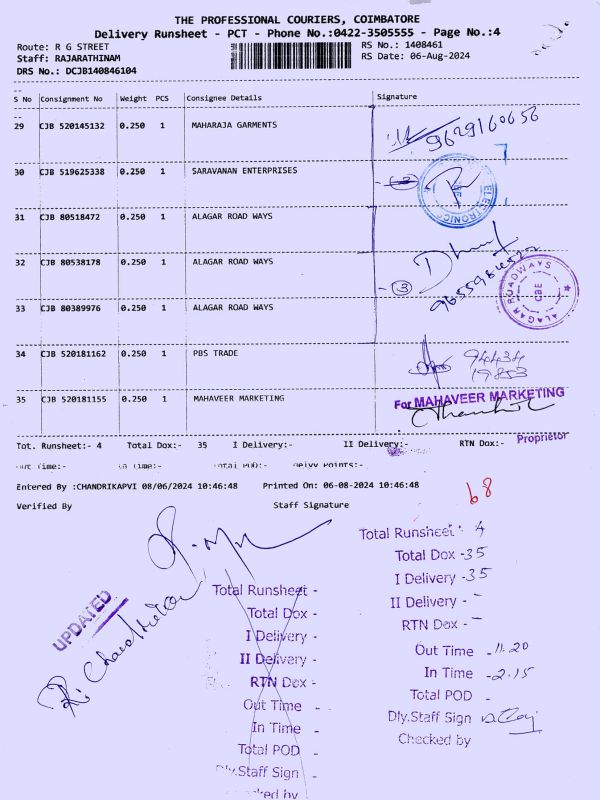 THE PROFESSIONAL COURIERS, COIMBATORE
Delivery Runsheet - PCT - Phone No.:0422-3505555 - Page No.:4
Route: R G STREET
RS No.: 1408461
Staff: RAJARATHINAM
RS Date: 06-Aug-2024
DRS No.: DCJB140846104
S No Consignment No Weight PCS Consignee Details Signature
29 CJB 520145132 0.250 1 MAHARAJA GARMENTS
9629160656
30 CJB 519625338 0.250 1 SARAVANAN ENTERPRISES
ELECTRONICS
31 CJB 80518472 0.250 1 ALAGAR ROAD WAYS
32 CJB 80538178 0.250 1 ALAGAR ROAD WAYS
3
ALAGAR ROADWAYS
CBE
33 CJB 80389976 0.250 1 ALAGAR ROAD WAYS
34 CJB 520181162 0.250 1 PBS TRADE
94434
19853
35 CJB 520181155 0.250 1 MAHAVEER MARKETING
For MAHAVEER MARKETING
Proprietor
Tot. Runsheet:- 4 Total Dox:- 35 I Delivery:- II Delivery:- RTN Dox:-
Out Time:- In Time:- Total POD:- Delvy Points:-
Entered By :CHANDRIKAPVI 08/06/2024 10:46:48 Printed On: 06-08-2024 10:46:48
68
Verified By Staff Signature
UPDATED
Total Runsheet -
Total Dox -
I Delivery -
II Delivery -
RTN Dox -
Out Time -
In Time -
Total POD -
Dly.Staff Sign -
Total Runsheet - 4
Total Dox - 35
I Delivery - 35
II Delivery - -
RTN Dox - -
Out Time - 11.20
In Time - 2.15
Total POD -
Dly.Staff Sign
Checked by